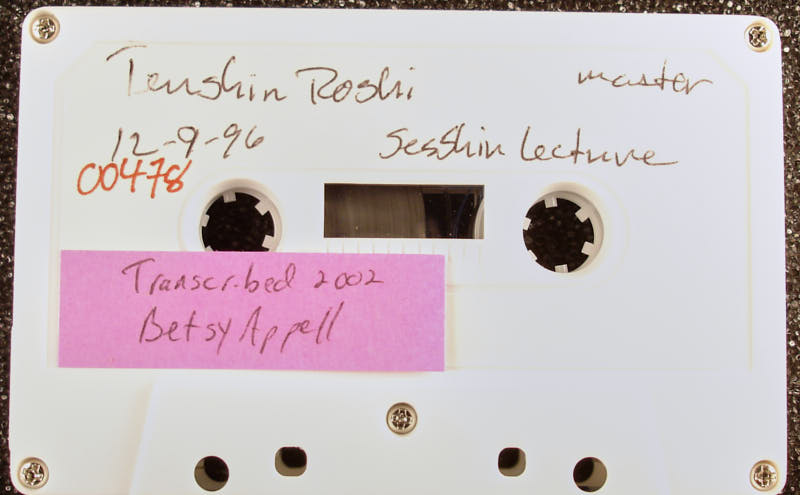 Tenshin Roshi master
12-9-96 Sesshin Lecture
00478
Transcribed 2002
Betsy Appell